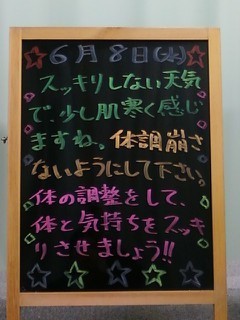 6月8日(水)
スッキリしない天気
で、少し肌寒く感じ
ますね。体調崩さ
ないようにして下さい。
体の調整をして、
体と気持ちをスッキ
リさせましょう!!